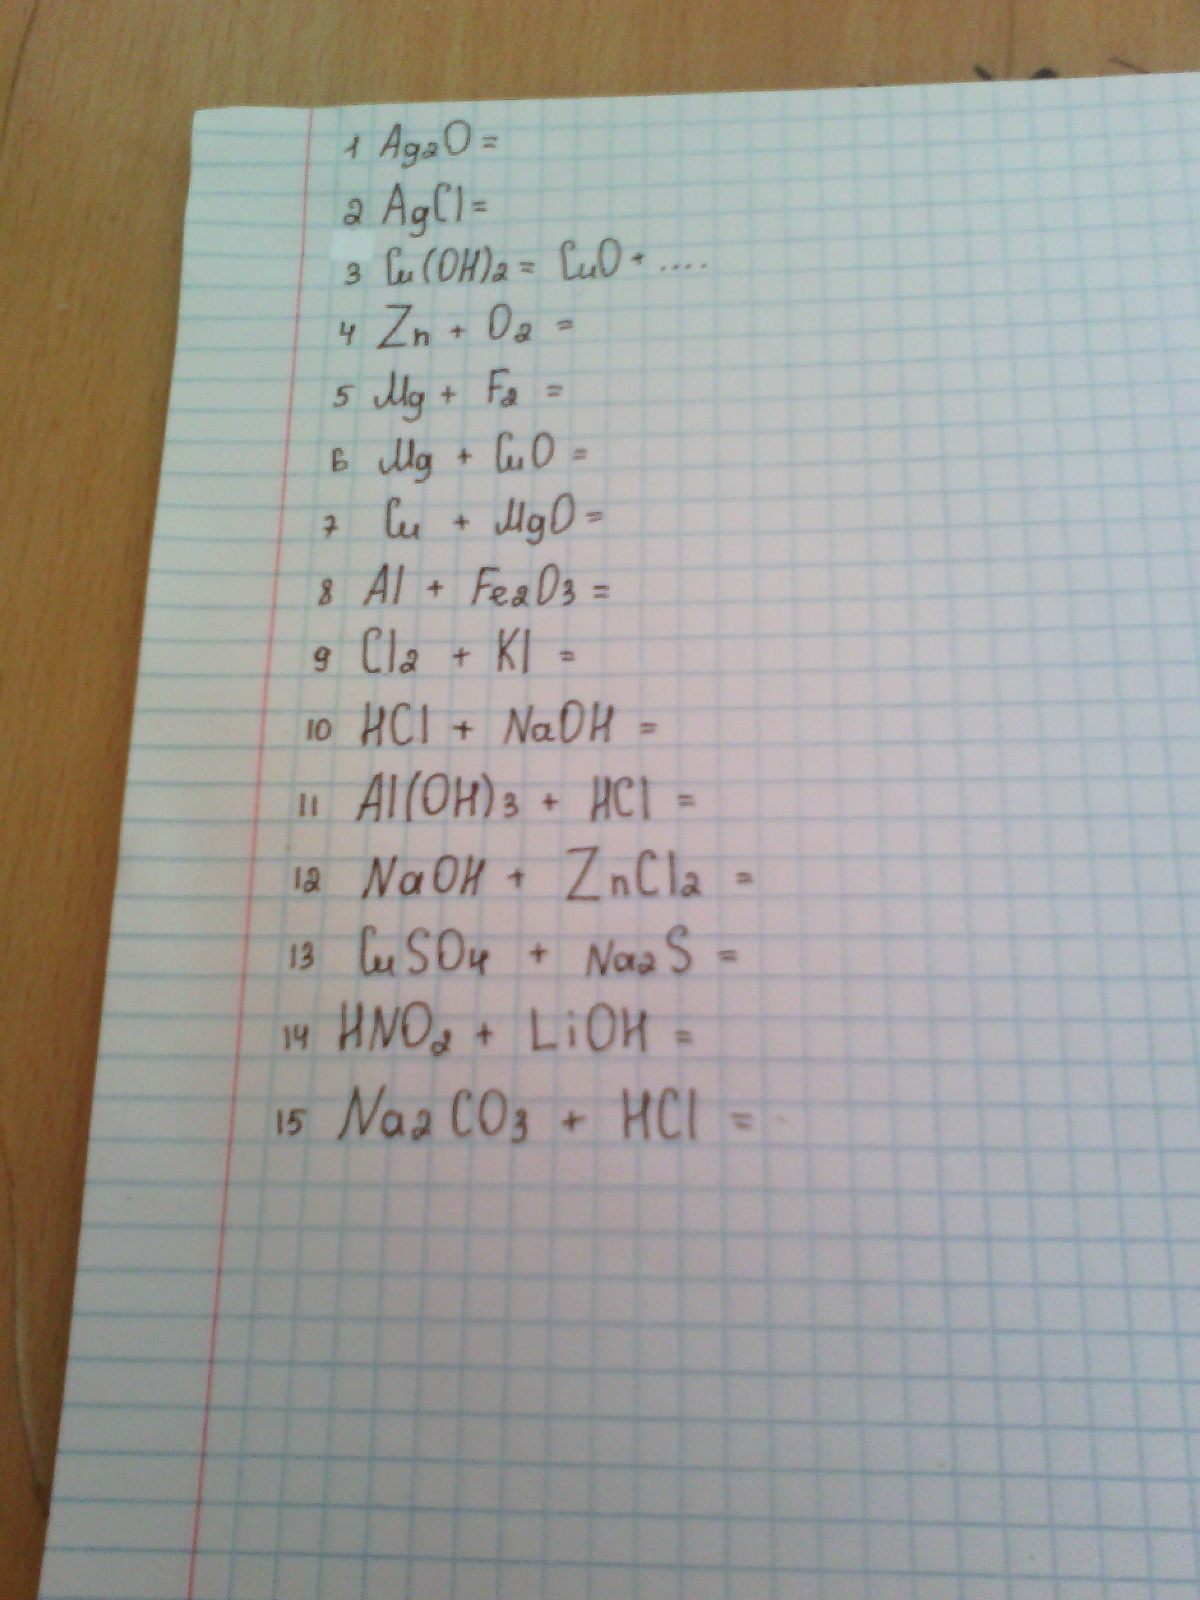 1 Ag2O =
2 AgCl =
3 Cu(OH)2 = CuO + ....
4 Zn + O2 =
5 Mg + F2 =
6 Mg + CuO =
7 Cu + MgO =
8 Al + Fe2O3 =
9 Cl2 + KI =
10 HCl + NaOH =
11 Al(OH)3 + HCl =
12 NaOH + ZnCl2 =
13 CuSO4 + Na2S =
14 HNO2 + LiOH =
15 Na2CO3 + HCl =